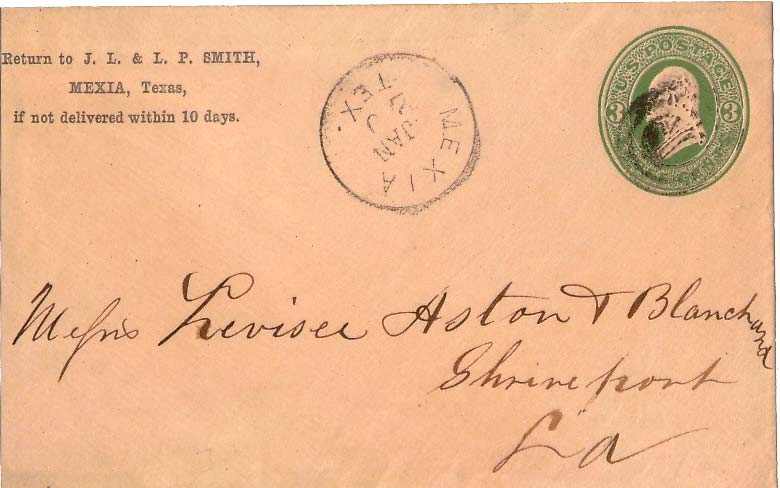 Return to J. L. & L. P. SMITH,
MEXIA, Texas,
if not delivered within 10 days.
MEXIA
TEX.
JAN
U.S. POSTAGE
3 3
Messrs Levisee Aston & Blanchard
Shreveport
La